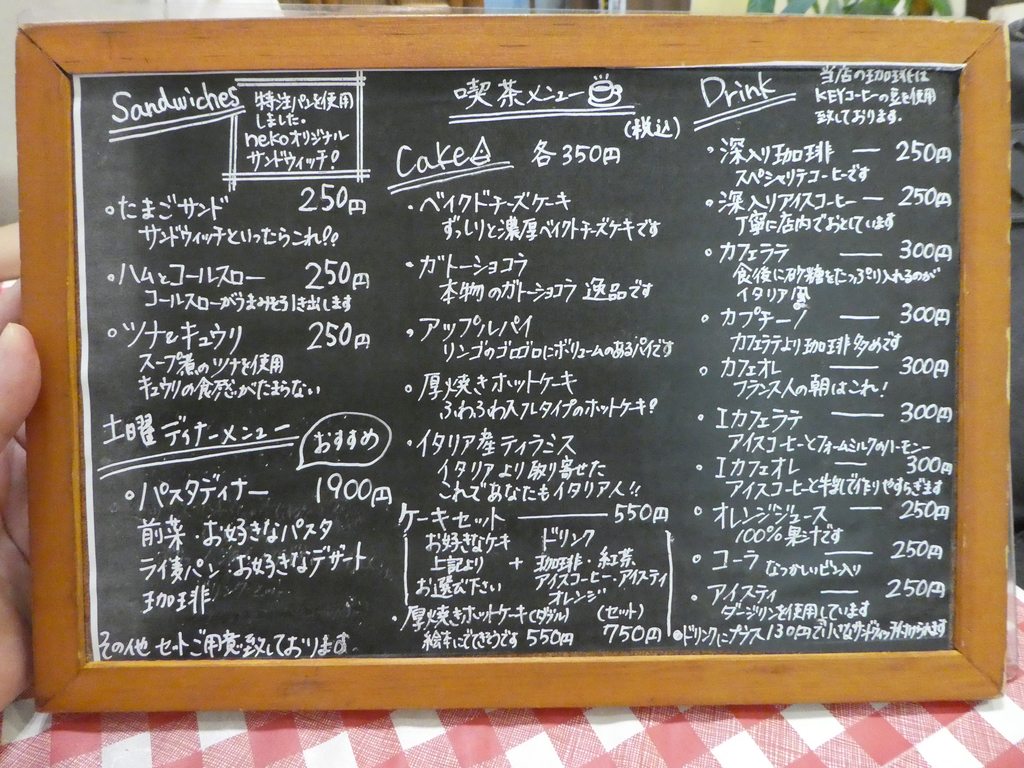 Sandwiches
特注パンを使用
しました。
nekoオリジナル
サンドウィッチ!
・たまごサンド 250円
サンドウィッチといったらこれ!!
・ハムとコールスロー 250円
コールスローがうまみを引き出します
・ツナとキュウリ 250円
スープ煮のツナを使用
キュウリの食感がたまらない
土曜ディナーメニュー
おすすめ
・パスタディナー 1900円
前菜・お好きなパスタ
ライ麦パン・お好きなデザート
珈琲
その他セットご用意致しております。
喫茶メニュー
(税込)
Cake 各350円
・ベイクドチーズケーキ
ずっしりと濃厚ベイクトチーズケキです
・ガトーショコラ
本物のガトーショコラ 逸品です
・アップルパイ
リンゴのゴロゴロにボリュームのあるパイです
・厚焼きホットケーキ
ふわふわスフレタイプのホットケーキ!
・イタリア産ティラミス
イタリアより取り寄せた
これであなたもイタリア人!!
ケーキセット 550円
お好きなケキ
上記より
お選び下さい
+
ドリンク
珈琲・紅茶、
アイスコーヒー・アイスティ
オレンジ
・厚焼きホットケーキ(ダブル) (セット)
550円 750円
Drink
当店の珈琲は
KEYコーヒーの豆を使用
致しております。
・深入り珈琲 — 250円
スペシャリテコーヒーです
・深入りアイスコーヒー — 250円
丁寧に店内でおとしています
・カフェラテ — 300円
食後に砂糖をたっぷり入れるのが
イタリア風
・カプチーノ — 300円
カフェラテより珈琲多めです
・カフェオレ — 300円
フランス人の朝はこれ!
・Iカフェラテ — 300円
アイスコーヒーとフォームミルクのハーモニー
・Iカフェオレ — 300円
アイスコーヒーと牛乳で作りやすらぎます
・オレンジジュース — 250円
100%果汁です
・コーラ なつかしいビン入り — 250円
・アイスティ — 250円
ダージリンを使用しています
・ドリンクにプラス130円で